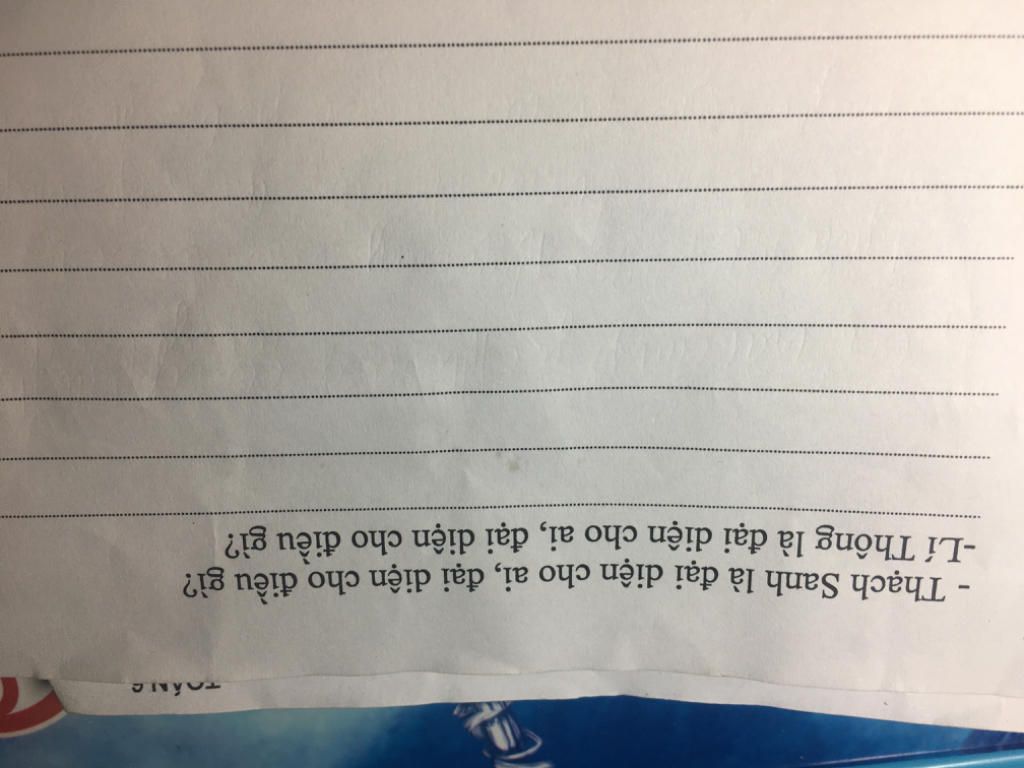 TOÁN 6
- Thạch Sanh là đại diện cho ai, đại diện cho điều gì?
-Lí Thông là đại diện cho ai, đại diện cho điều gì?